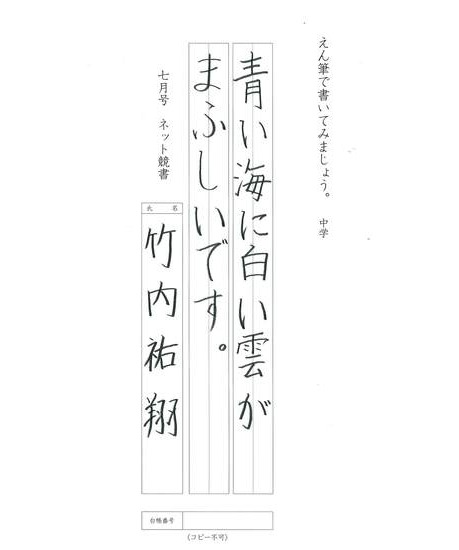 えん筆で書いてみましょう。 中学
青い海に白い雲が
まぶしいです。
七月号 ネット競書
氏名
竹内祐翔
台帳番号
(コピー不可)